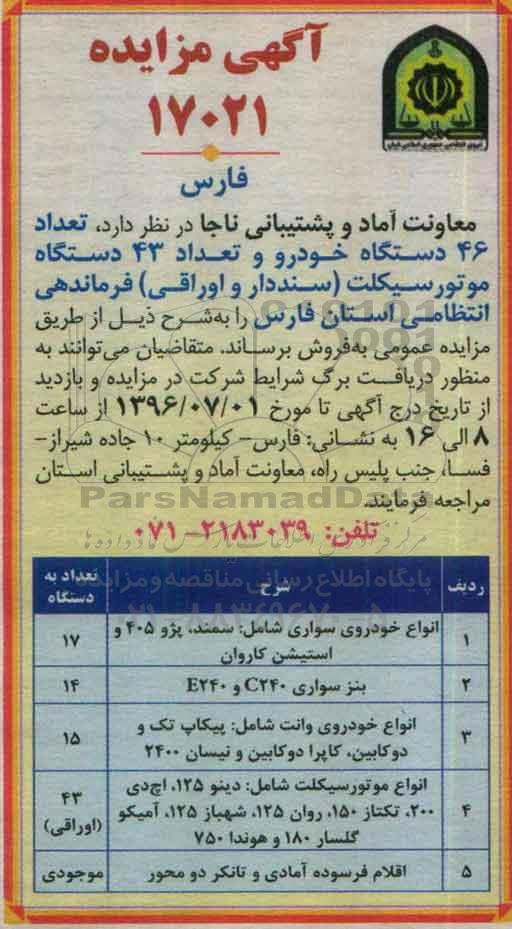 آگهی مزایده
۱۷۰۲۱
فارس
نیروی انتظامی جمهوری اسلامی ایران
معاونت آماد و پشتیبانی ناجا در نظر دارد، تعداد
۴۶ دستگاه خودرو و تعداد ۴۳ دستگاه
موتورسیکلت (سنددار و اوراقی) فرماندهی
انتظامی استان فارس را به‌شرح ذیل از طریق
مزایده عمومی به‌فروش برساند. متقاضیان می‌توانند به
منظور دریافت برگ شرایط شرکت در مزایده و بازدید
از تاریخ درج آگهی تا مورخ ۱۳۹۶/۰۷/۰۱ از ساعت
۸ الی ۱۶ به نشانی: فارس- کیلومتر ۱۰ جاده شیراز-
فسا، جنب پلیس راه، معاونت آماد و پشتیبانی استان
مراجعه فرمایند.
ParsNamadData
تلفن: ۲۱۸۳۰۳۹-۰۷۱
پایگاه اطلاع رسانی مناقصه و مزایده
ردیف شرح تعداد به دستگاه
۱ انواع خودروی سواری شامل: سمند، پژو ۴۰۵ و
استیشن کاروان ۱۷
۲ بنز سواری C۲۴۰ و E۲۴۰ ۱۴
۳ انواع خودروی وانت شامل: پیکاپ تک و
دوکابین، کاپرا دوکابین و نیسان ۲۴۰۰ ۱۵
۴ انواع موتورسیکلت شامل: دینو ۱۲۵، اچ‌دی
۲۰۰، تکتاز ۱۵۰، روان ۱۲۵، شهباز ۱۲۵، آمیکو
گلسار ۱۸۰ و هوندا ۷۵۰ ۴۳ (اوراقی)
۵ اقلام فرسوده آمادی و تانکر دو محور موجودی